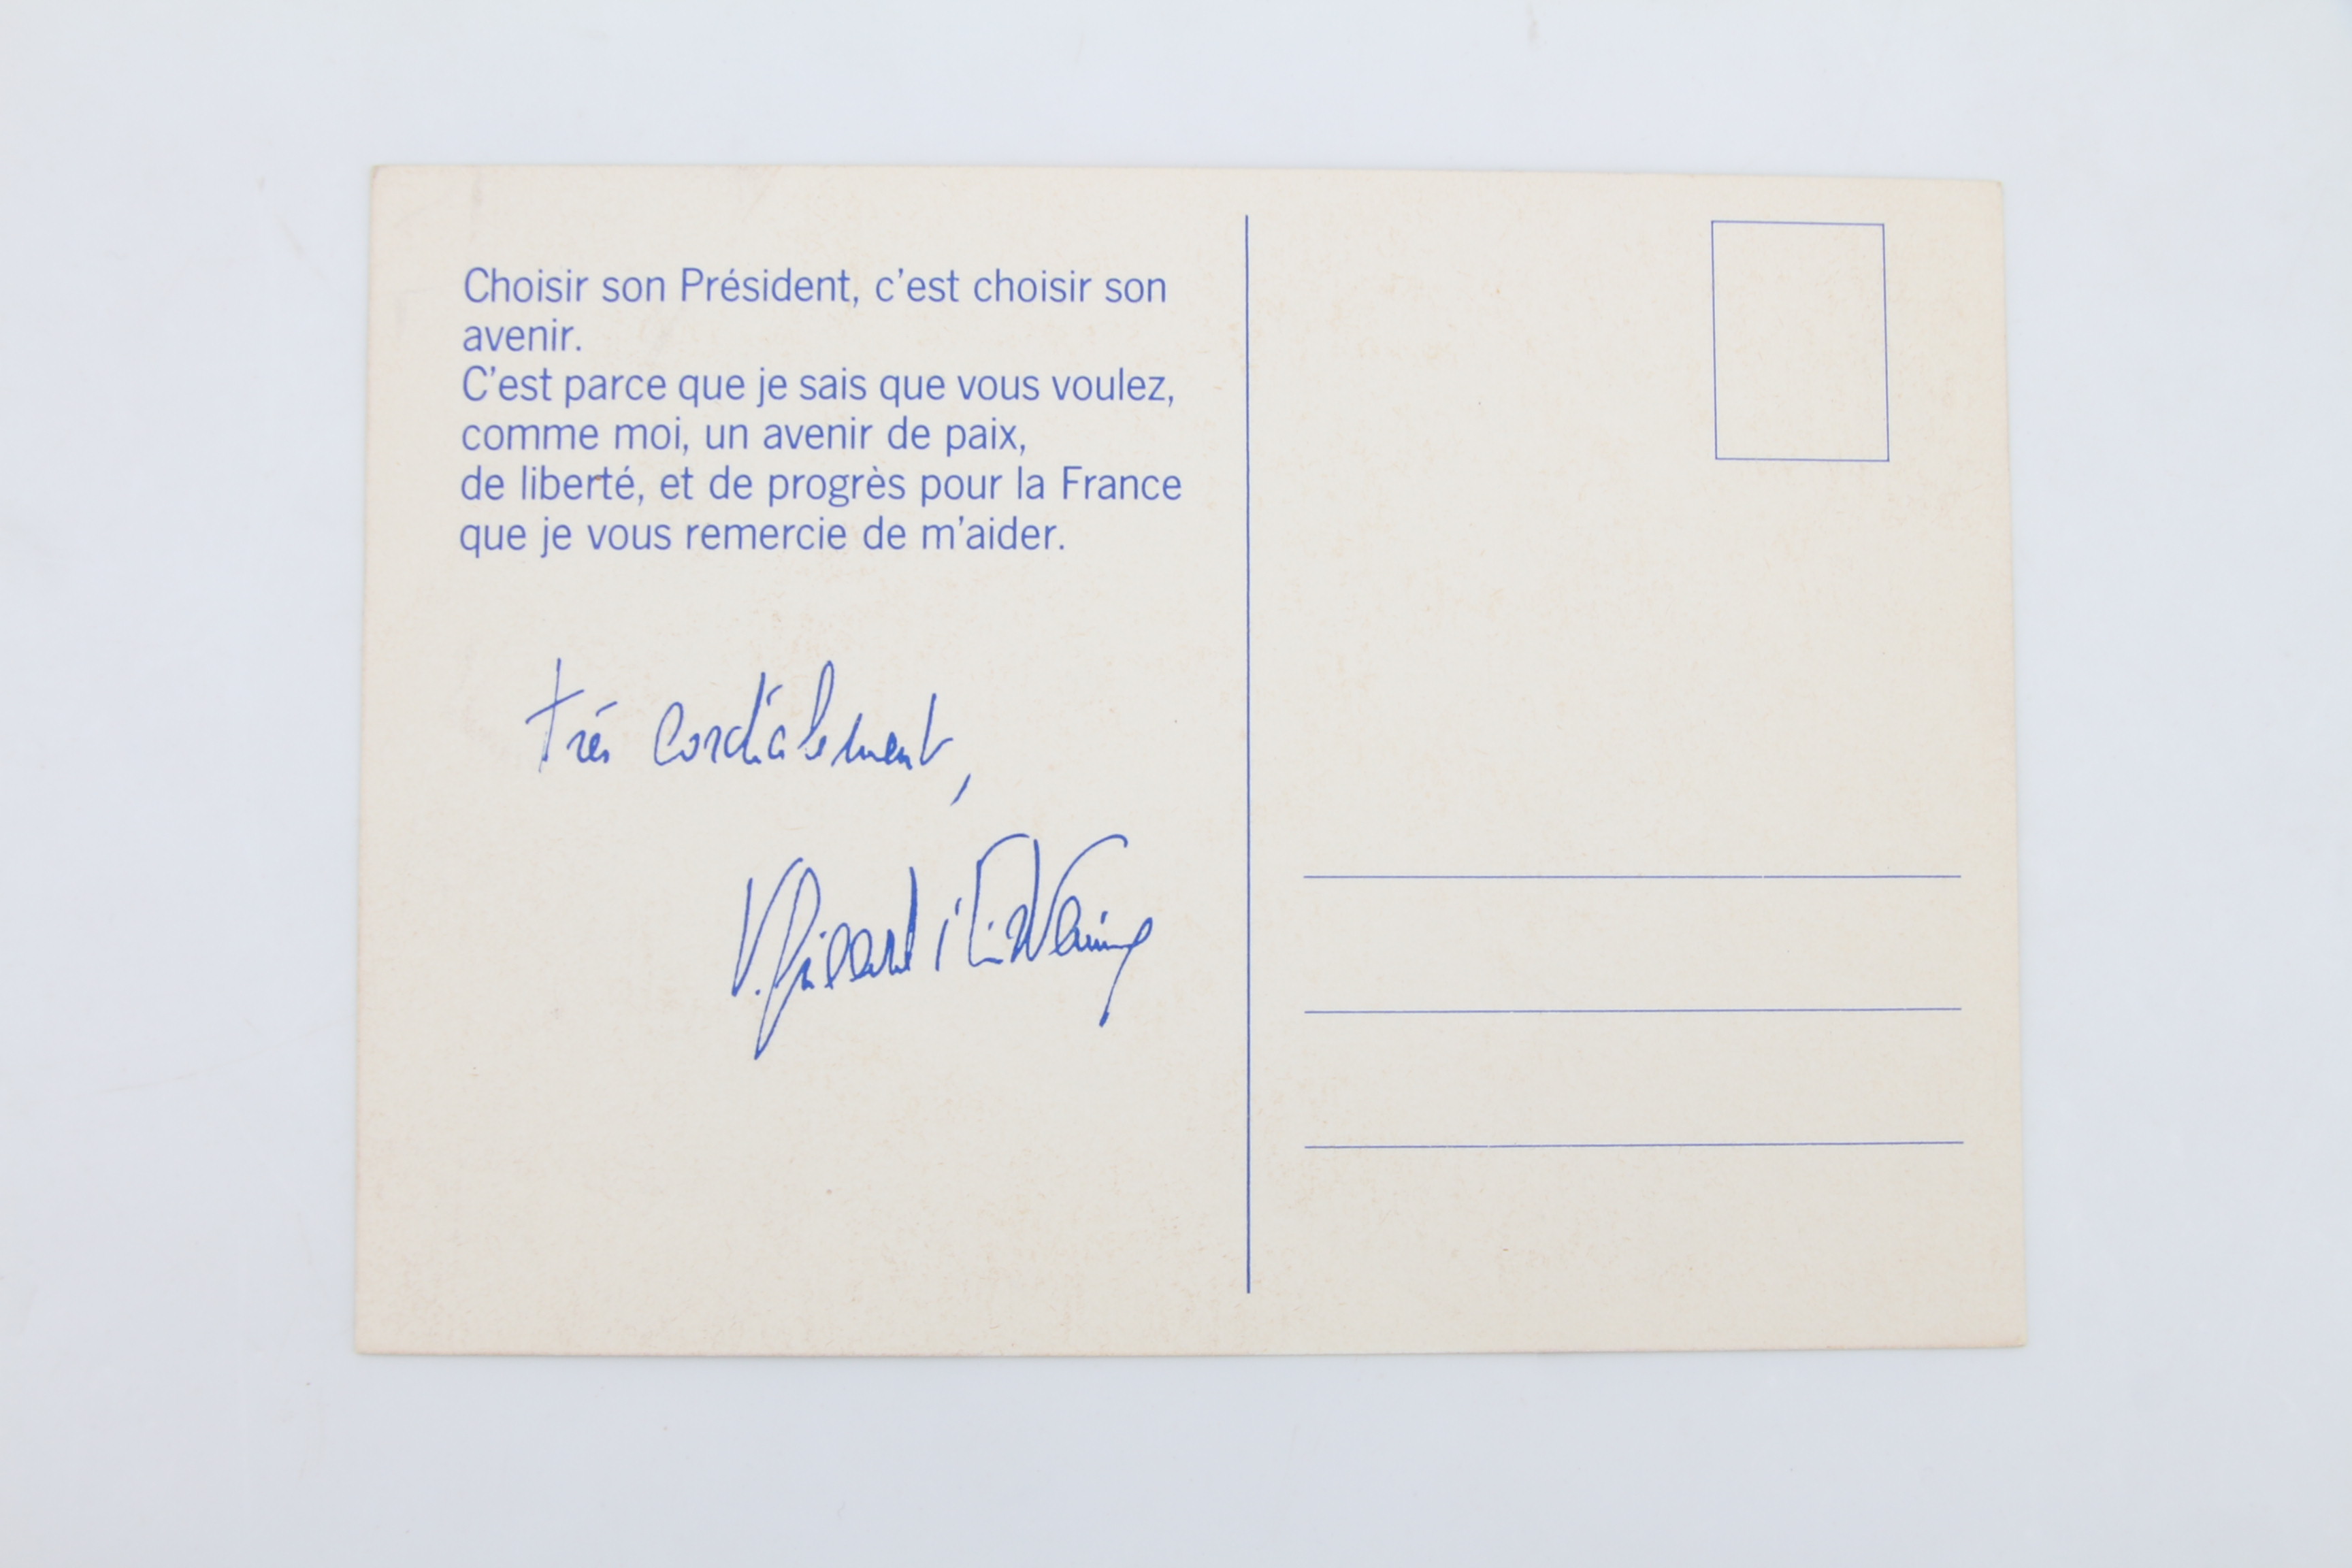 Choisir son Président, c'est choisir son
avenir.
C'est parce que je sais que vous voulez,
comme moi, un avenir de paix,
de liberté, et de progrès pour la France
que je vous remercie de m'aider.
très cordialement,
V. Giscard d'Estaing